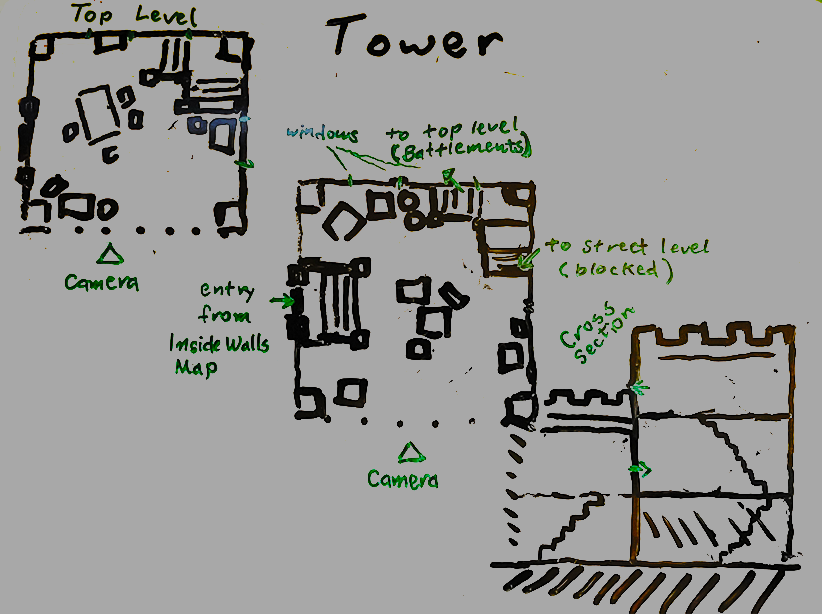 Top Level
Tower
windows
to top level
(Battlements)
Camera
to street level
(blocked)
entry
from
Inside Walls
Map
Cross
Section
Camera